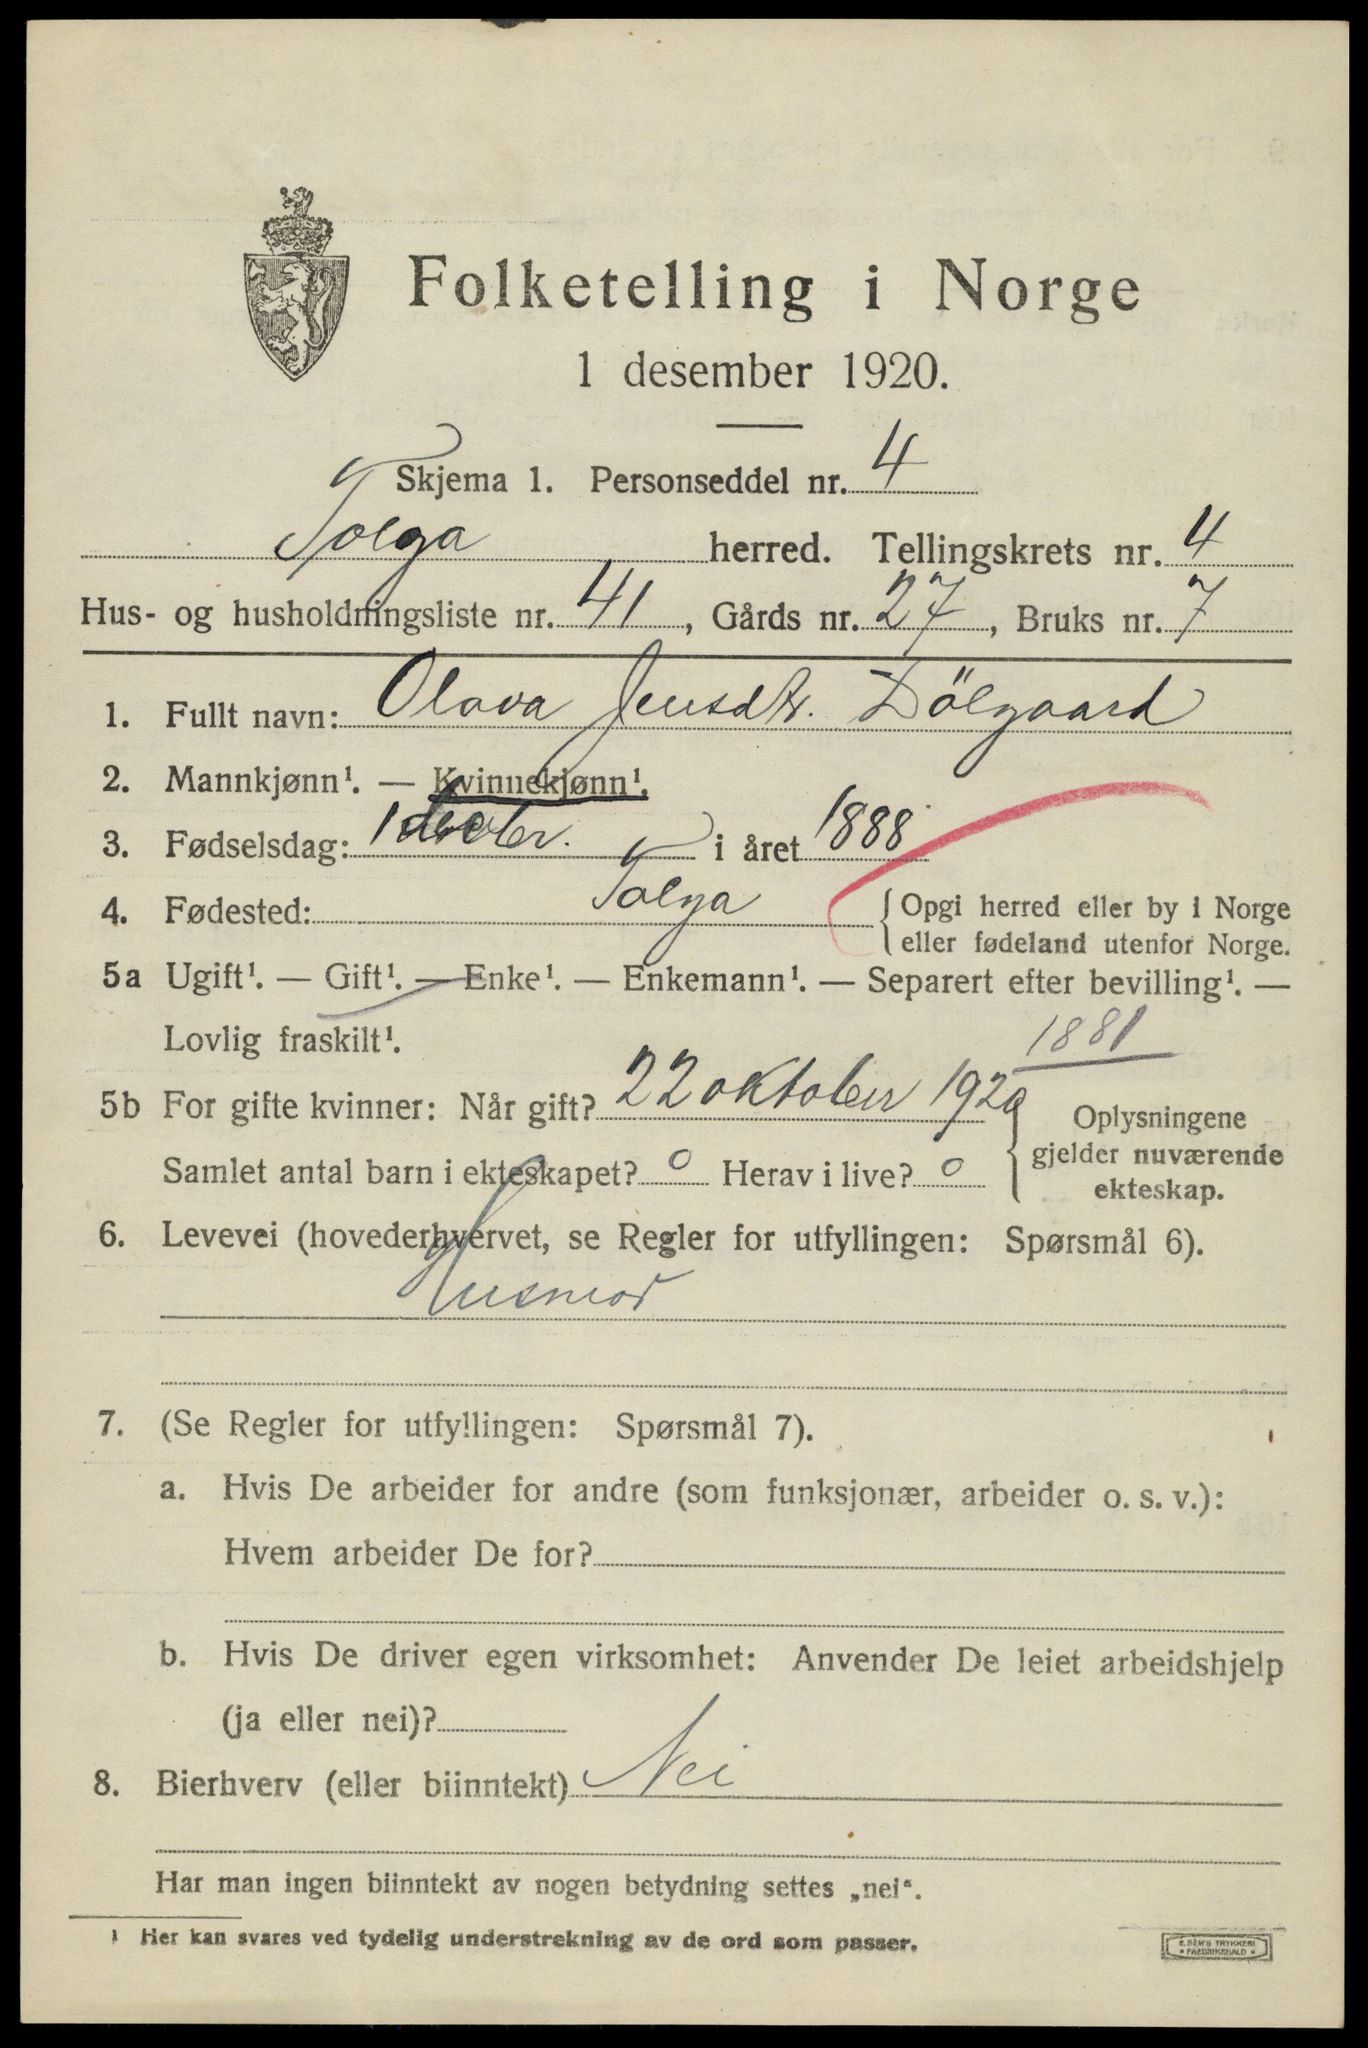 Folketelling i Norge
1 desember 1920.
Skjema 1. Personseddel nr. 4
Tolga herred. Tellingskrets nr. 4
Hus- og husholdningsliste nr. 41, Gårds nr. 27, Bruks nr. 7
1. Fullt navn: Olava Jensdtr. Dölgaard
2. Mannkjønn¹. — Kvinnekjønn¹.
3. Fødselsdag: 1 i året 1888
4. Fødested: Tolga { Opgi herred eller by i Norge
eller fødeland utenfor Norge.
5a Ugift¹. — Gift¹. — Enke¹. — Enkemann¹. — Separert efter bevilling¹. —
Lovlig fraskilt¹.
1881
5b For gifte kvinner: Når gift? 22 oktober 1920
Samlet antal barn i ekteskapet? 0 Herav i live? 0
Oplysningene
gjelder nuværende
ekteskap.
6. Levevei (hovederhvervet, se Regler for utfyllingen: Spørsmål 6).
Husmor
7. (Se Regler for utfyllingen: Spørsmål 7).
a. Hvis De arbeider for andre (som funksjonær, arbeider o. s. v.):
Hvem arbeider De for?
b. Hvis De driver egen virksomhet: Anvender De leiet arbeidshjelp
(ja eller nei)?
8. Bierhverv (eller biinntekt) Nei
Har man ingen biinntekt av nogen betydning settes „nei".
¹ Her kan svares ved tydelig understrekning av de ord som passer.
E. SEM'S TRYKKERI
• FREDRIKSHALD •